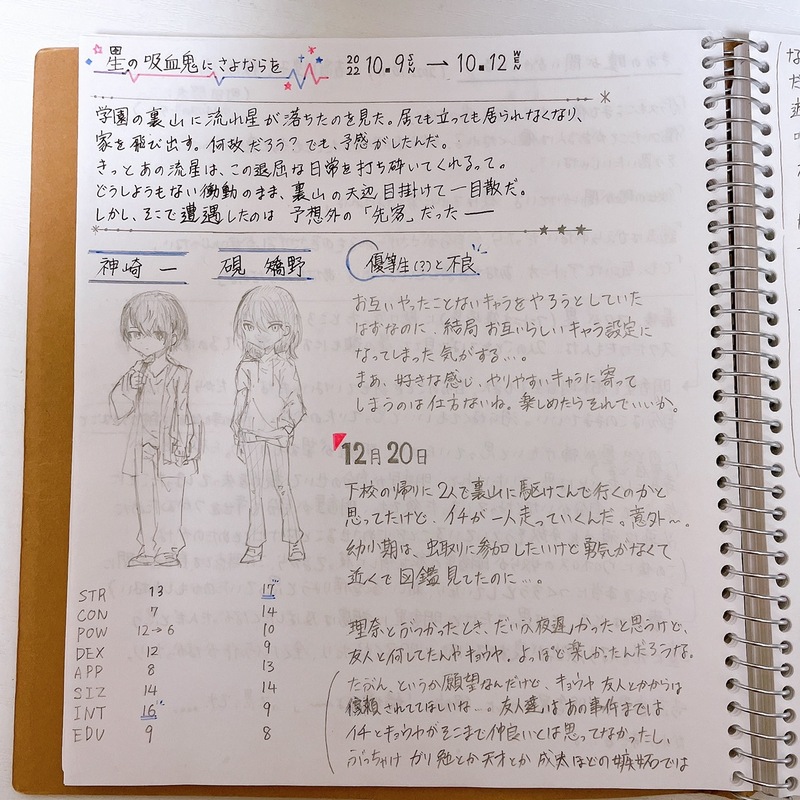 星の吸血鬼にさよならを 2022 10.9 SUN → 10.12 WEN
学園の裏山に流れ星が落ちたのを見た。居ても立っても居られなくなり、
家を飛び出す。何故だろう?でも、予感がしたんだ。
きっとあの流星は、この退屈な日常を打ち砕いてくれるって。
どうしようもない衝動のまま、裏山の天辺目掛けて一目散だ。
しかし、そこで遭遇したのは 予想外の「先客」だった ──
神崎 一 硯 矯野 優等生(?)と不良
お互いやったことないキャラをやろうとしていた
はずなのに、結局お互いらしいキャラ設定に
なってしまった気がする…。
まあ、好きな感じ、やりやすいキャラに寄って
しまうのは仕方ないね。楽しめたらそれでいいか。
12月20日
下校の帰りに2人で裏山に駆けこんで行くのかと
思ってたけど、イチが一人走っていくんだ。意外〜。
幼少期は、虫取りに参加したいけど勇気がなくて
近くで図鑑見てたのに…。
理奈とぶつかったとき、だいぶ夜遅かったと思うけど、
友人と何してたんやキョウヤ。よっぽど楽しかったんだろうな。
たぶん、というか願望なんだけど、キョウヤ 友人とかからは
信頼されてほしいな…。友人達はあの事件までは
イチとキョウヤがそこまで仲良いとは思ってなかったし、
ぶっちゃけ ガリ勉とか天才とか 成太ほどの嫉妬では
STR 13 17
CON 7 14
POW 12→6 10
DEX 12 9
APP 8 13
SIZ 14 14
INT 16 9
EDU 9 8